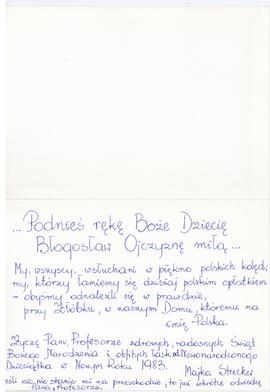 ... Podnieś rękę Boże Dziecię
Błogosław Ojczyznę miłą ...
My, wszyscy, wsłuchani w piękno polskich kolęd;
my, którzy łamiemy się dzisiaj polskim opłatkiem
– obyśmy odnaleźli się w prawdzie,
przy Żłóbku, w naszym Domu, któremu na
imię - Polska.
Życzę Panu, Profesorze zdrowych, radosnych Świąt
Bożego Narodzenia i obfitych łask od Nowonarodzonego
Dzieciątka w Nowym Roku 1983.
Majka Strecker
jeśli nic nie stanie mi na przeszkodzie, to już wkrótce odwiedzę
Pana, Profesorze.